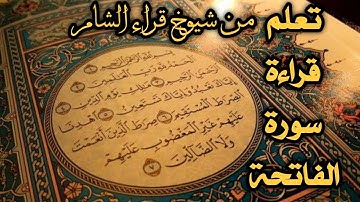 تعلم من شيوخ قراء الشام
قراءة
سورة
الفاتحة
بِسْمِ اللَّهِ الرَّحْمَٰنِ الرَّحِيمِ
الْحَمْدُ لِلَّهِ رَبِّ الْعَالَمِينَ
الرَّحْمَٰنِ الرَّحِيمِ مَالِكِ يَوْمِ الدِّينِ
إِيَّاكَ نَعْبُدُ وَإِيَّاكَ نَسْتَعِينُ اهْدِنَا
الصِّرَاطَ الْمُسْتَقِيمَ صِرَاطَ الَّذِينَ أَنْعَمْتَ
عَلَيْهِمْ غَيْرِ الْمَغْضُوبِ عَلَيْهِمْ
وَلَا الضَّالِّينَ ٧